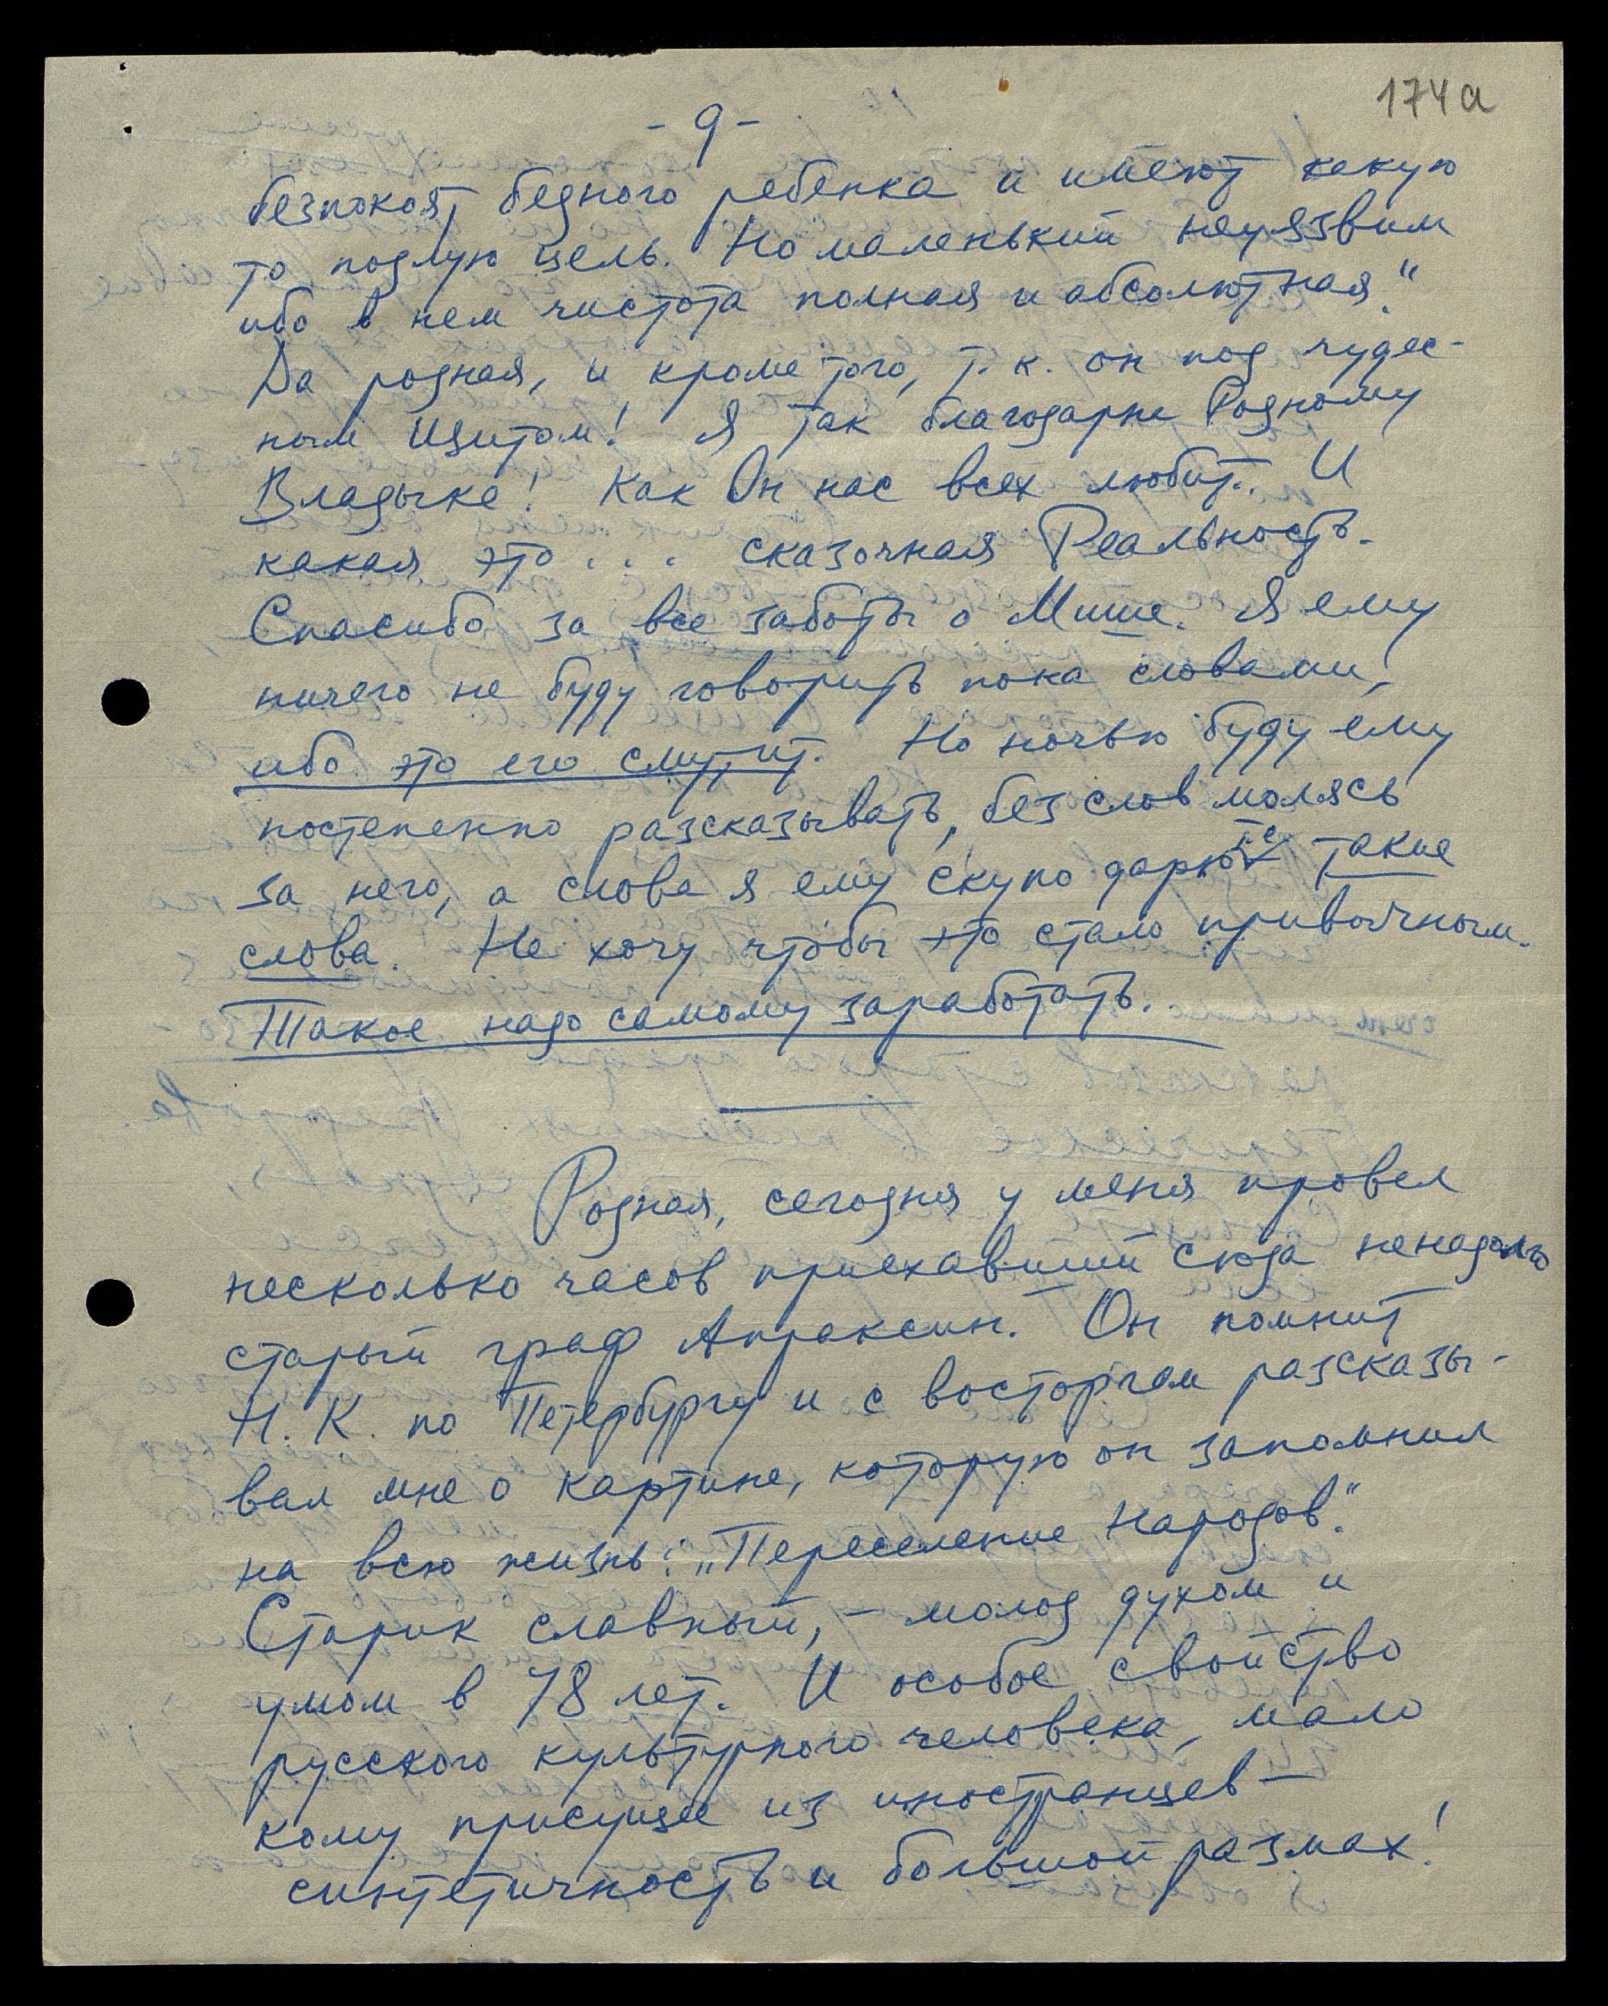 174а
- 9 -
безпокоят бедного ребенка и имеют какую
то подлую цель. Но маленький неуязвим
ибо в нем чистота полная и абсолютная."
Да родная, и кроме того, т. к. он под чудес-
ным Щитом! Я так благодарна Родному
Владыке! Как Он нас всех любит.. И
какая это . . . сказочная Реальность.
Спасибо за все заботы о Мише. Я ему
ничего не буду говорить пока словами,
ибо это его смутит. Но ночью буду ему
постепенно разсказывать, без слов молясь
за него, а слова я ему скупо дарю те такие
слова. Не хочу чтобы это стало привычным.
Такое надо самому заработать.
Родная, сегодня у меня провел
несколько часов приехавший сюда ненадолго
старый граф Апраксин. Он помнит
Н. К. по Петербургу и с восторгом разсказы-
вал мне о картине, которую он запомнил
на всю жизнь: „Переселение Народов".
Старик славный, – молод духом и
умом в 78 лет. И особое свойство
русского культурного человека, мало
кому присущее из иностранцев –
синтетичность и большой размах!